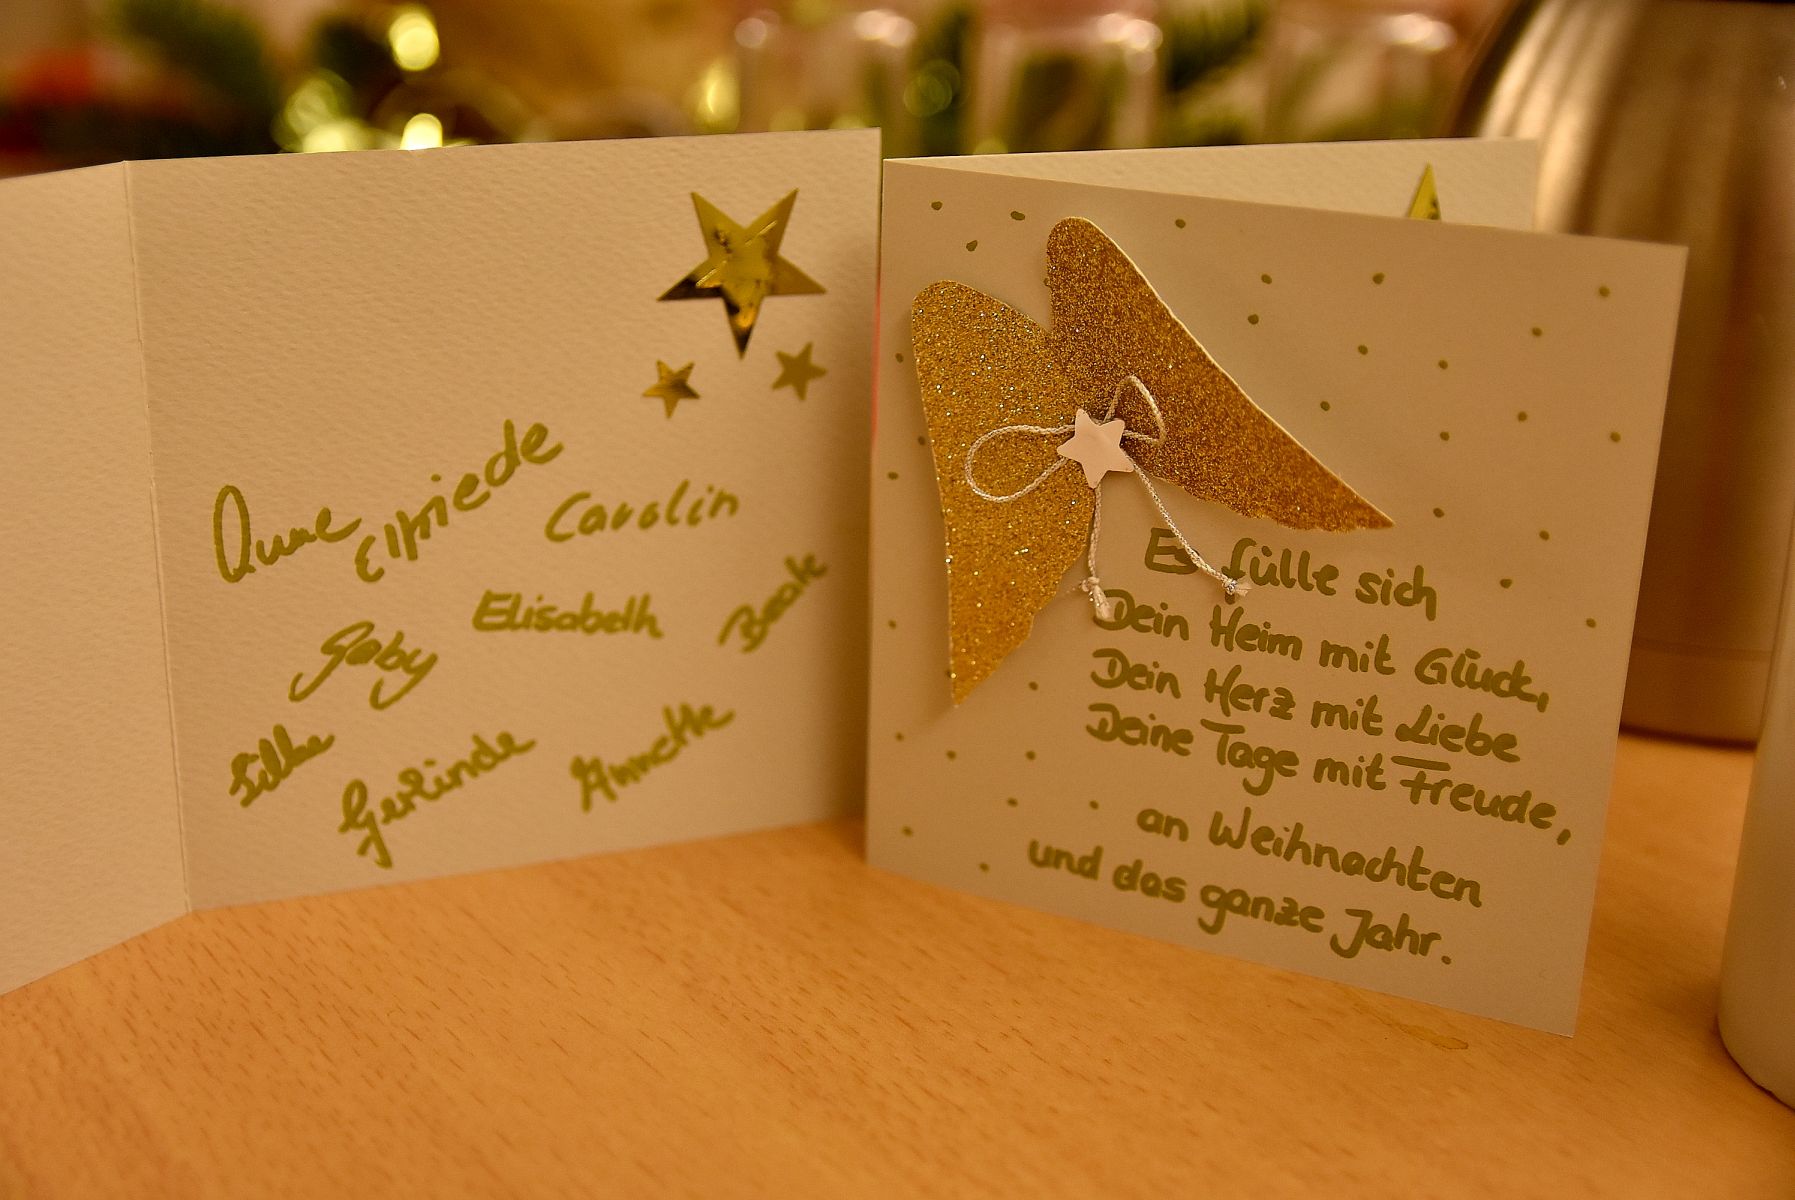 Anne
Elfriede
Carolin
Elisabeth
Beate
Gaby
Silke
Gerlinde
Annette
Es fülle sich
Dein Heim mit Glück,
Dein Herz mit Liebe
Deine Tage mit Freude,
an Weihnachten
und das ganze Jahr.